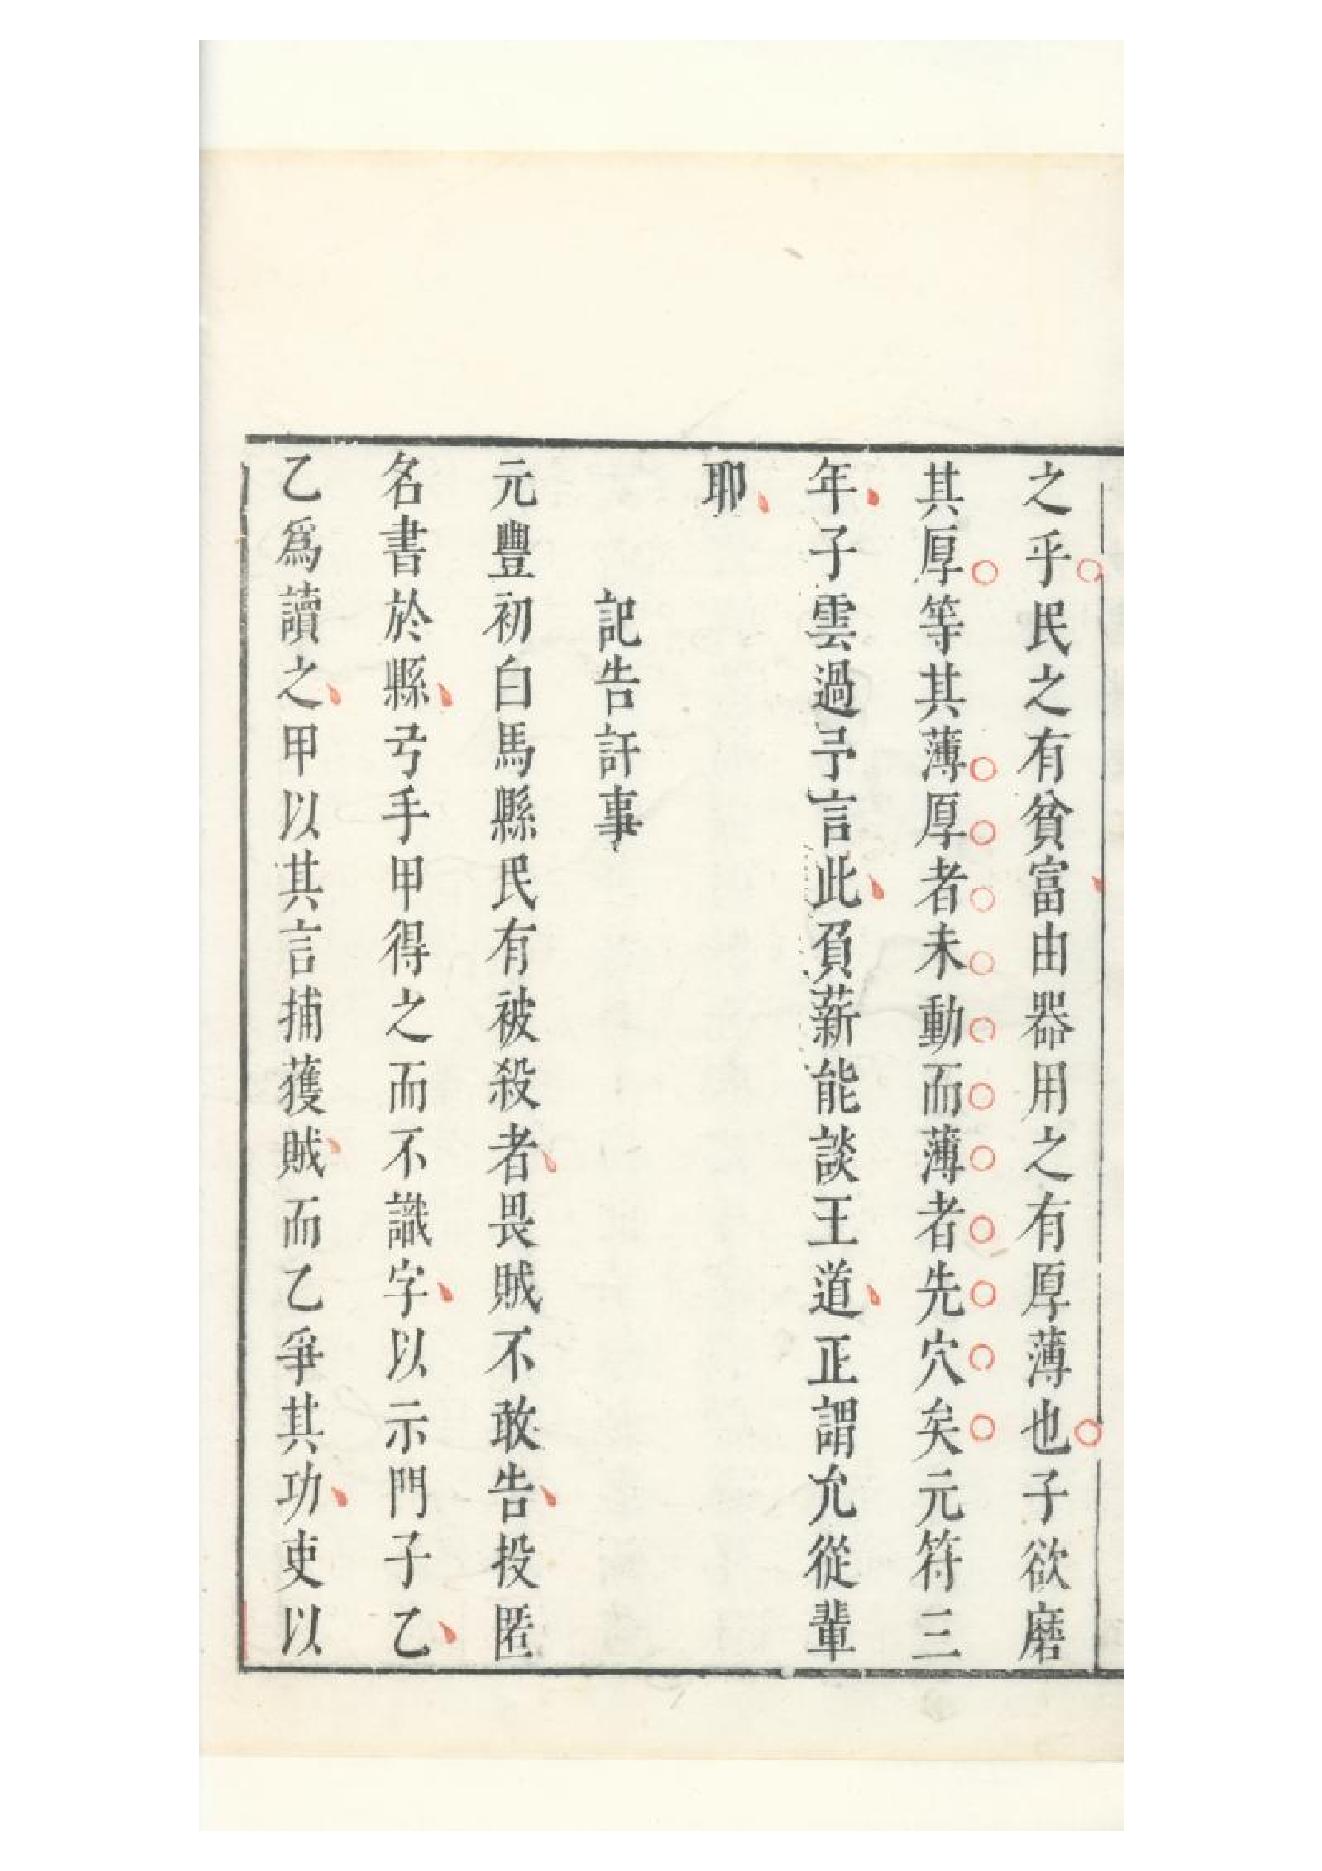 之乎民之有貧富由器用之有厚薄也子欲磨
其厚等其薄厚者未動而薄者先穴矣元符三
年子雲過予言此負薪能談王道正謂允從輩
耶
記告訐事
元豐初白馬縣民有被殺者畏賊不敢告投匿
名書於縣弓手甲得之而不識字以示門子乙
乙爲讀之甲以其言捕獲賊而乙爭其功吏以